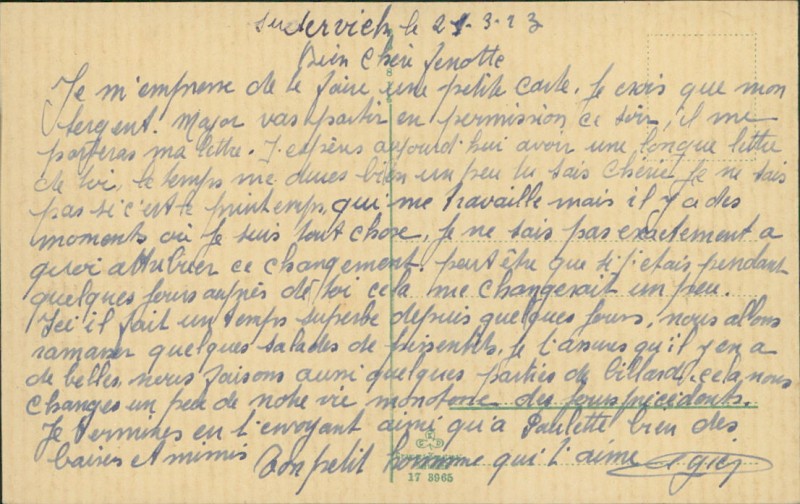 Sudervich le 21-3-23
Bien Chère Jenotte
Je m'empresse de te faire une petite carte. Je crois que mon
sergent. Major vas partir en permission ce soir, il me
porteras ma lettre. J'espères aujourd'hui avoir une longue lettre
de toi, le temps me dures bien un peu tu sais Chérie, Je ne sais
pas si c'est le printemps, qui me travaille mais il y a des
moments où Je suis tout chose, Je ne sais pas exactement a
quoi attribuer ce changement. peut être que si j'etais pendant
quelques Jours auprès de toi cela me changerait un peu.
Ici il fait un temps superbe depuis quelques Jours, nous allons
ramasser quelques salades de pissenlits, Je t'assures qu'il y en a
de belles, nous faisons aussi quelques parties de billard, cela nous
changes un peu de notre vie monotone des Jours précédents.
Je termines en t'envoyant ainsi qu'a Paulette bien des
baises et mimis Ton petit homme qui t'aime
17 3965